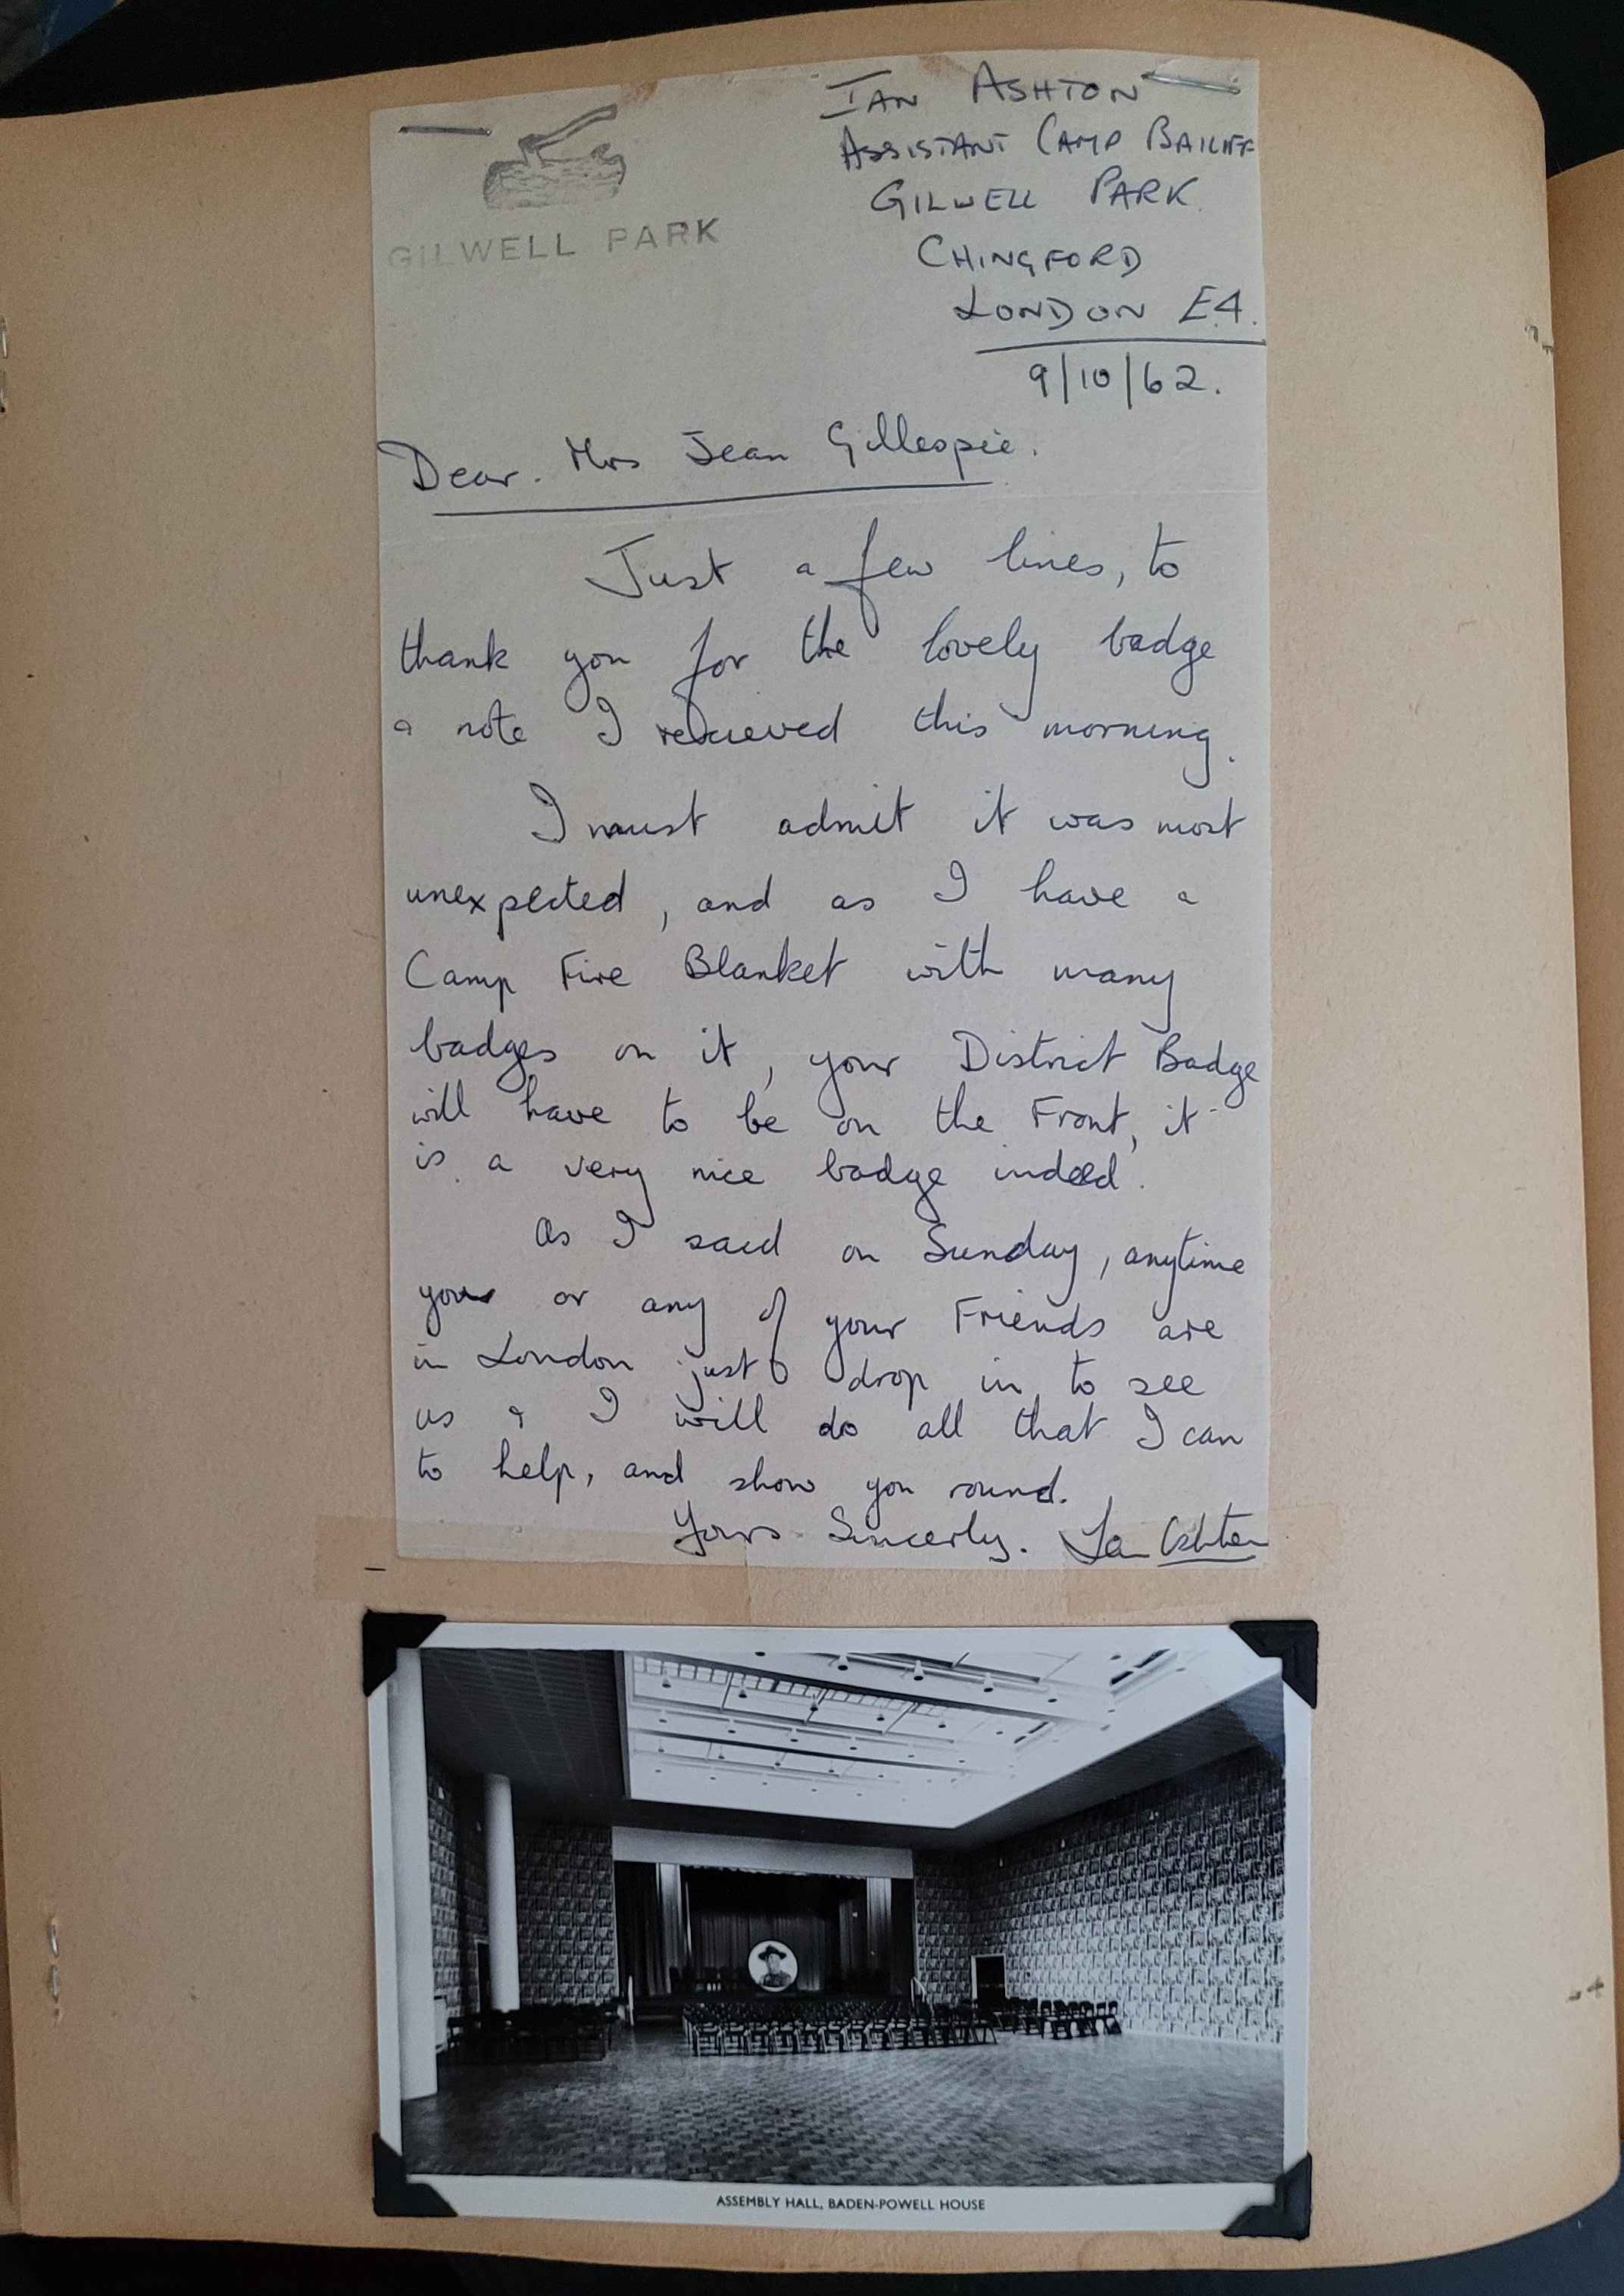 GILWELL PARK
IAN ASHTON
ASSISTANT CAMP BAILIFF
GILWELL PARK
CHINGFORD
LONDON E.4.
9/10/62.
Dear. Mrs Jean Gillespie.
Just a few lines, to
thank you for the lovely badge
& note I recieved this morning.
I must admit it was most
unexpected, and as I have a
Camp Fire Blanket with many
badges on it, your District Badge
will have to be on the Front, it
is a very nice badge indeed.
As I said on Sunday, anytime
you or any of your Friends are
in London just drop in to see
us & I will do all that I can
to help, and show you round.
Yours Sincerly. Ian Ashton
ASSEMBLY HALL, BADEN-POWELL HOUSE